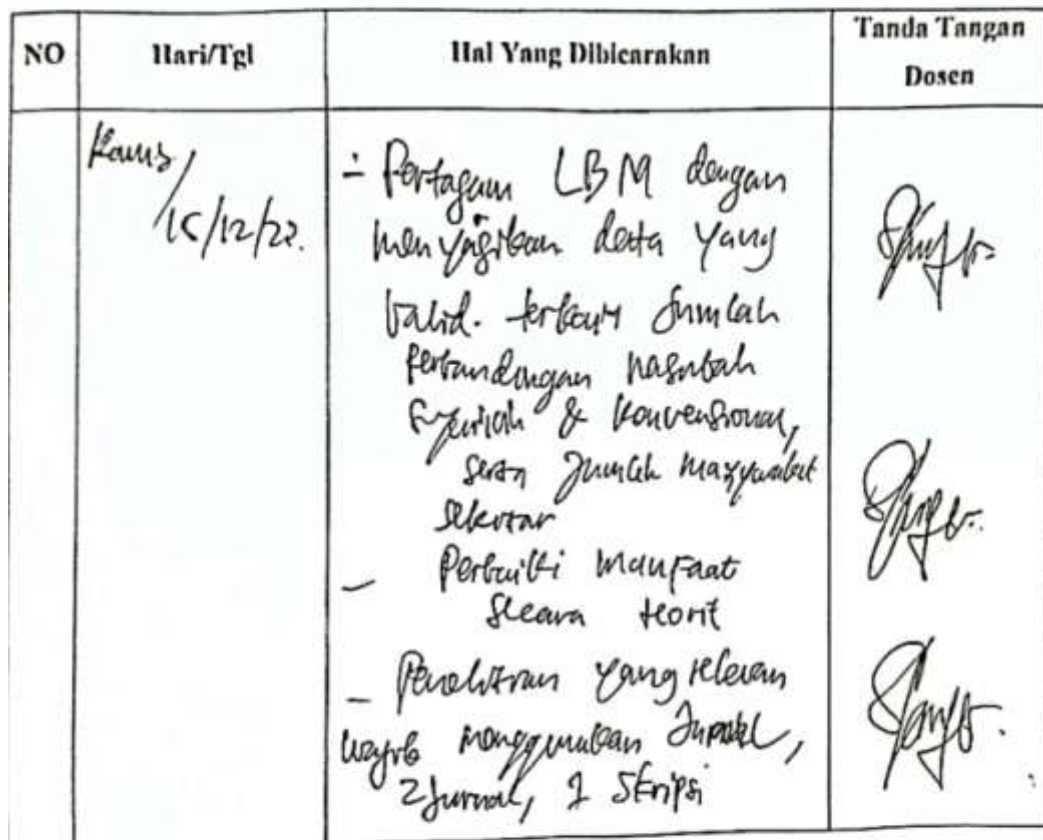 NO Hari/Tgl Hal Yang Dibicarakan Tanda Tangan Dosen
Kamis,
15/12/22.
- Pertagam LBM dengan
menyajikan data yang
valid. terkait Jumlah
perbandingan nasabah
Syariah & konvensional,
serta Jumlah masyarakat
sekitar
- Perbaiki manfaat
secara teorit
- Penelitian yang relevan
wajib menggunakan Jurnal,
2 Jurnal, 2 Skripsi